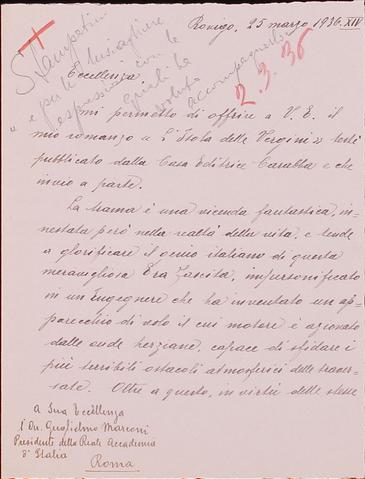 Rovigo, 25 marzo 1936. XIV
Stampatino
e per le lusinghiere
espressioni con le
quali ha
voluto
accompagnarlo
2.3.36
Eccellenza,
mi permetto di offrire a V. E. il
mio romanzo "L'Isola delle Vergini" testè
pubblicato dalla Casa Editrice Carabba e che
invio a parte.
La trama è una vicenda fantastica, in-
nestata però nella realtà della vita, e tende
a glorificare il genio italiano di questa
meravigliosa Era fascista, impersonificato
in un Ingegnere che ha inventato un ap-
parecchio di volo il cui motore è azionato
dalle onde herziane, capace di sfidare i
più terribili ostacoli atmosferici delle traver-
sate. Oltre a questo, in virtù delle stesse
a Sua Eccellenza
l'On. Guglielmo Marconi
Presidente della Reale Accademia
d'Italia
Roma